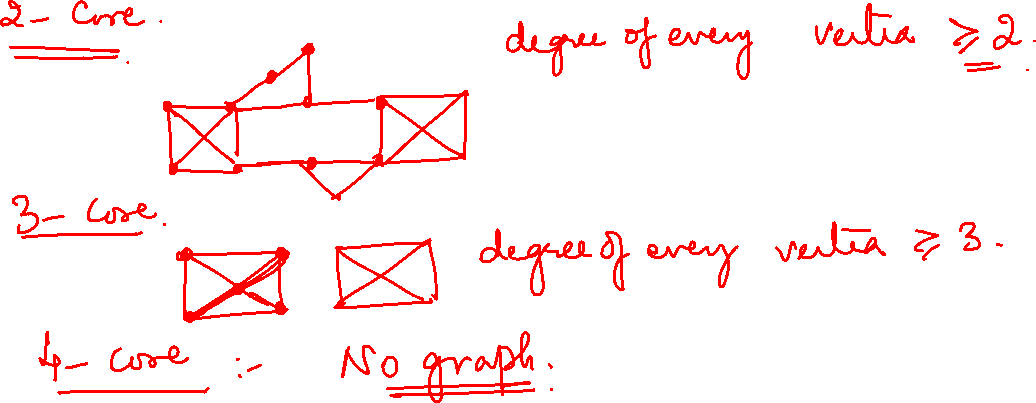 2- Core.
degree of every vertex ≥ 2.
3- Core.
degree of every vertex ≥ 3.
4- core :- No graph.